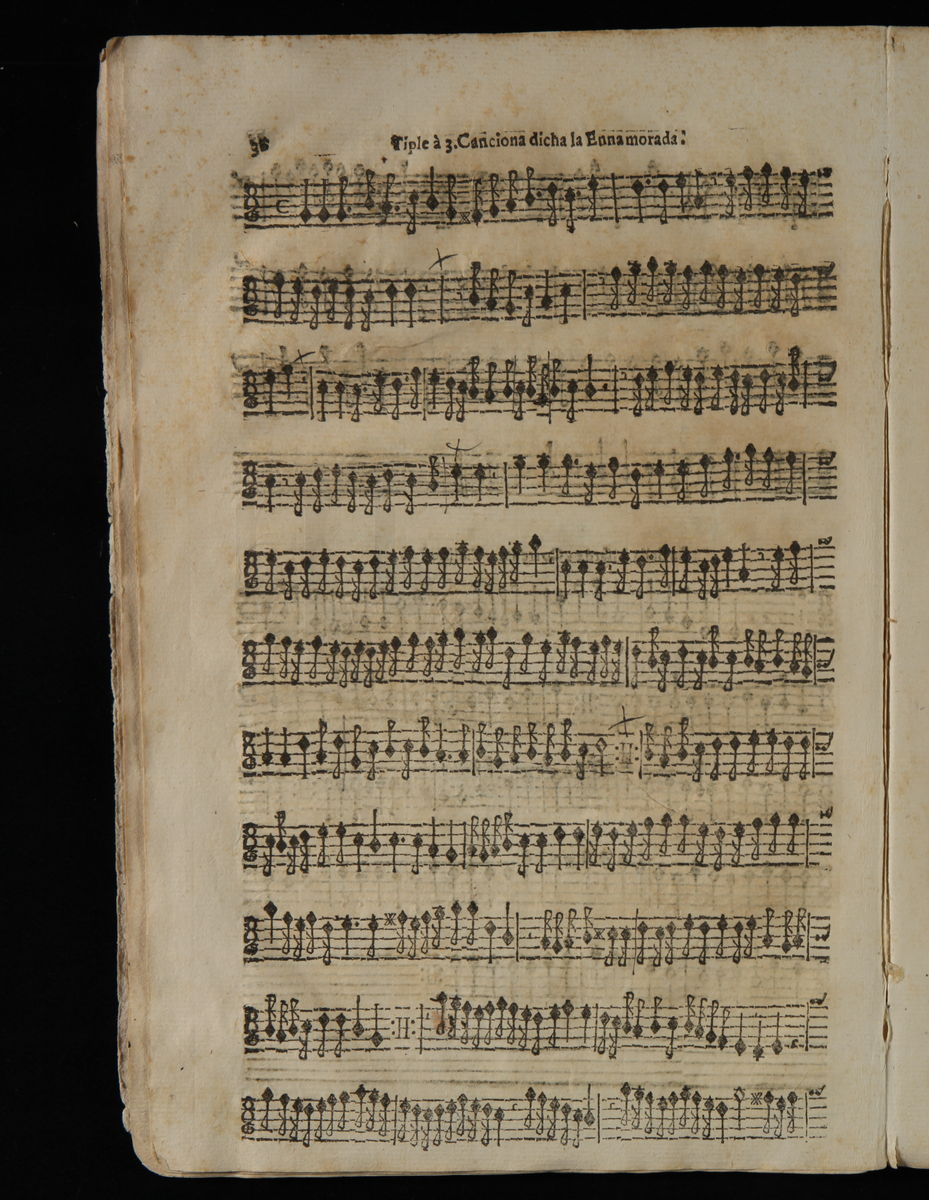 Tiple à 3. Canciona dicha la Ennamorada.